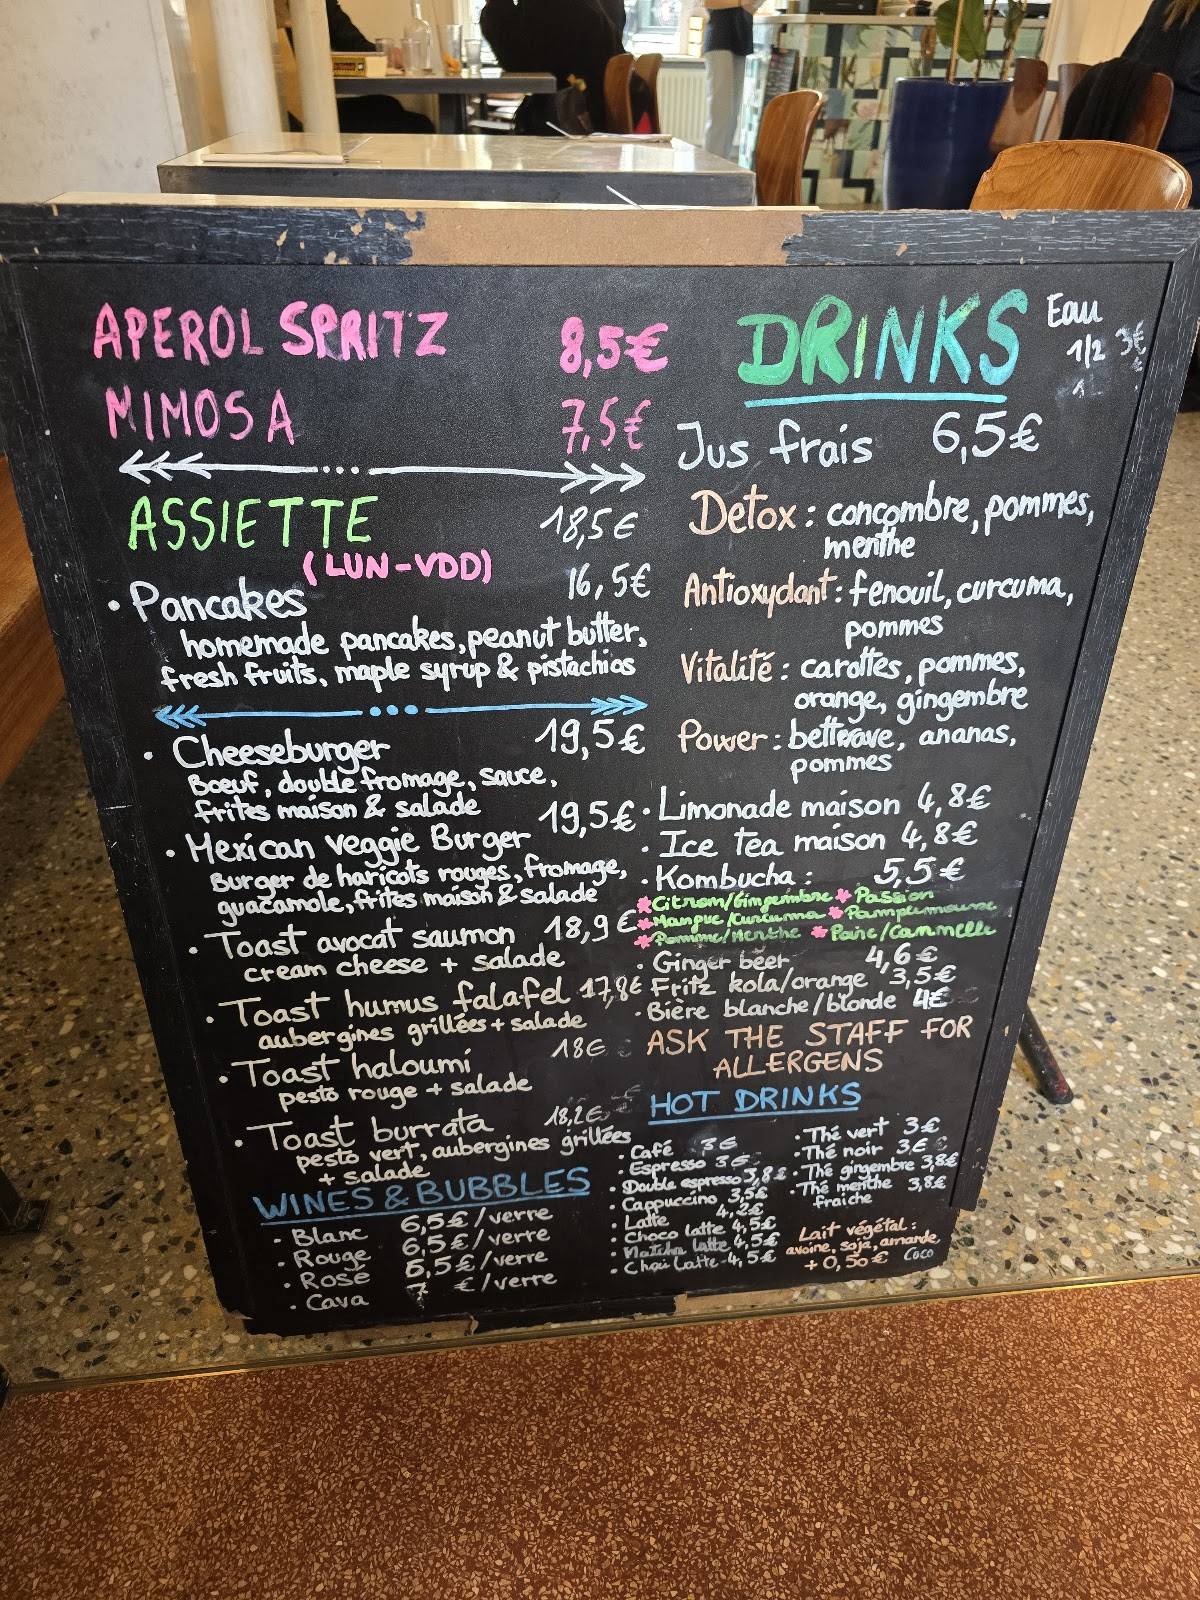 APEROL SPRITZ 8,5€
MIMOSA 7,5€
ASSIETTE 18,5€
(LUN-VDD)
• Pancakes 16,5€
homemade pancakes, peanut butter,
fresh fruits, maple syrup & pistachios
• Cheeseburger 19,5€
Boeuf, double fromage, sauce,
frites maison & salade
• Mexican veggie Burger 19,5€
Burger de haricots rouges, fromage,
guacamole, frites maison & salade
• Toast avocat saumon 18,9€
cream cheese + salade
• Toast humus falafel 17,8€
aubergines grillées + salade
• Toast haloumi 18€
pesto rouge + salade
• Toast burrata 18,2€
pesto vert, aubergines grillées
+ salade
WINES & BUBBLES
• Blanc 6,5€/verre
• Rouge 6,5€/verre
• Rosé 6,5€/verre
• Cava 7 €/verre
DRINKS
Eau
1/2 3€
Jus frais 6,5€
Detox : concombre, pommes,
menthe
Antioxydant : fenouil, curcuma,
pommes
Vitalité : carottes, pommes,
orange, gingembre
Power : betterave, ananas,
pommes
• Limonade maison 4,8€
• Ice tea maison 4,8€
• Kombucha : 5,5€
Citron/Gingembre Passion
Mangue/Curcuma Pamplemousse
Pomme/Menthe Poire/Cannelle
• Ginger beer 4,6€
Fritz kola/orange 3,5€
• Bière blanche/blonde 4€
ASK THE STAFF FOR
ALLERGENS
HOT DRINKS
• Café 3€
• Espresso 3€
• Double espresso 3,8€
• Cappuccino 3,5€
• Latte 4,2€
• Choco latte 4,5€
• Matcha latte 4,5€
• Chai Latte 4,5€
• Thé vert 3€
• Thé noir 3€
• Thé gingembre 3,8€
• Thé menthe 3,8€
fraiche
Lait végétal :
avoine, soja, amande
+ 0,50€ Coco